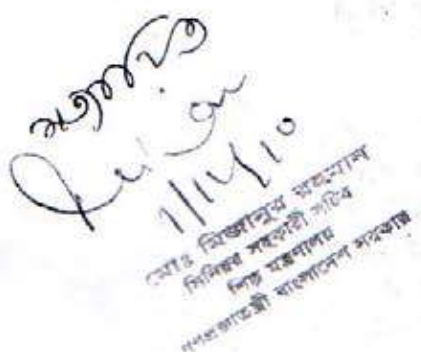 সত্যায়িত
1/12/10
মোঃ মিজানুর রহমান
সিনিয়র সহকারী সচিব
শিল্প মন্ত্রণালয়
গণপ্রজাতন্ত্রী বাংলাদেশ সরকার